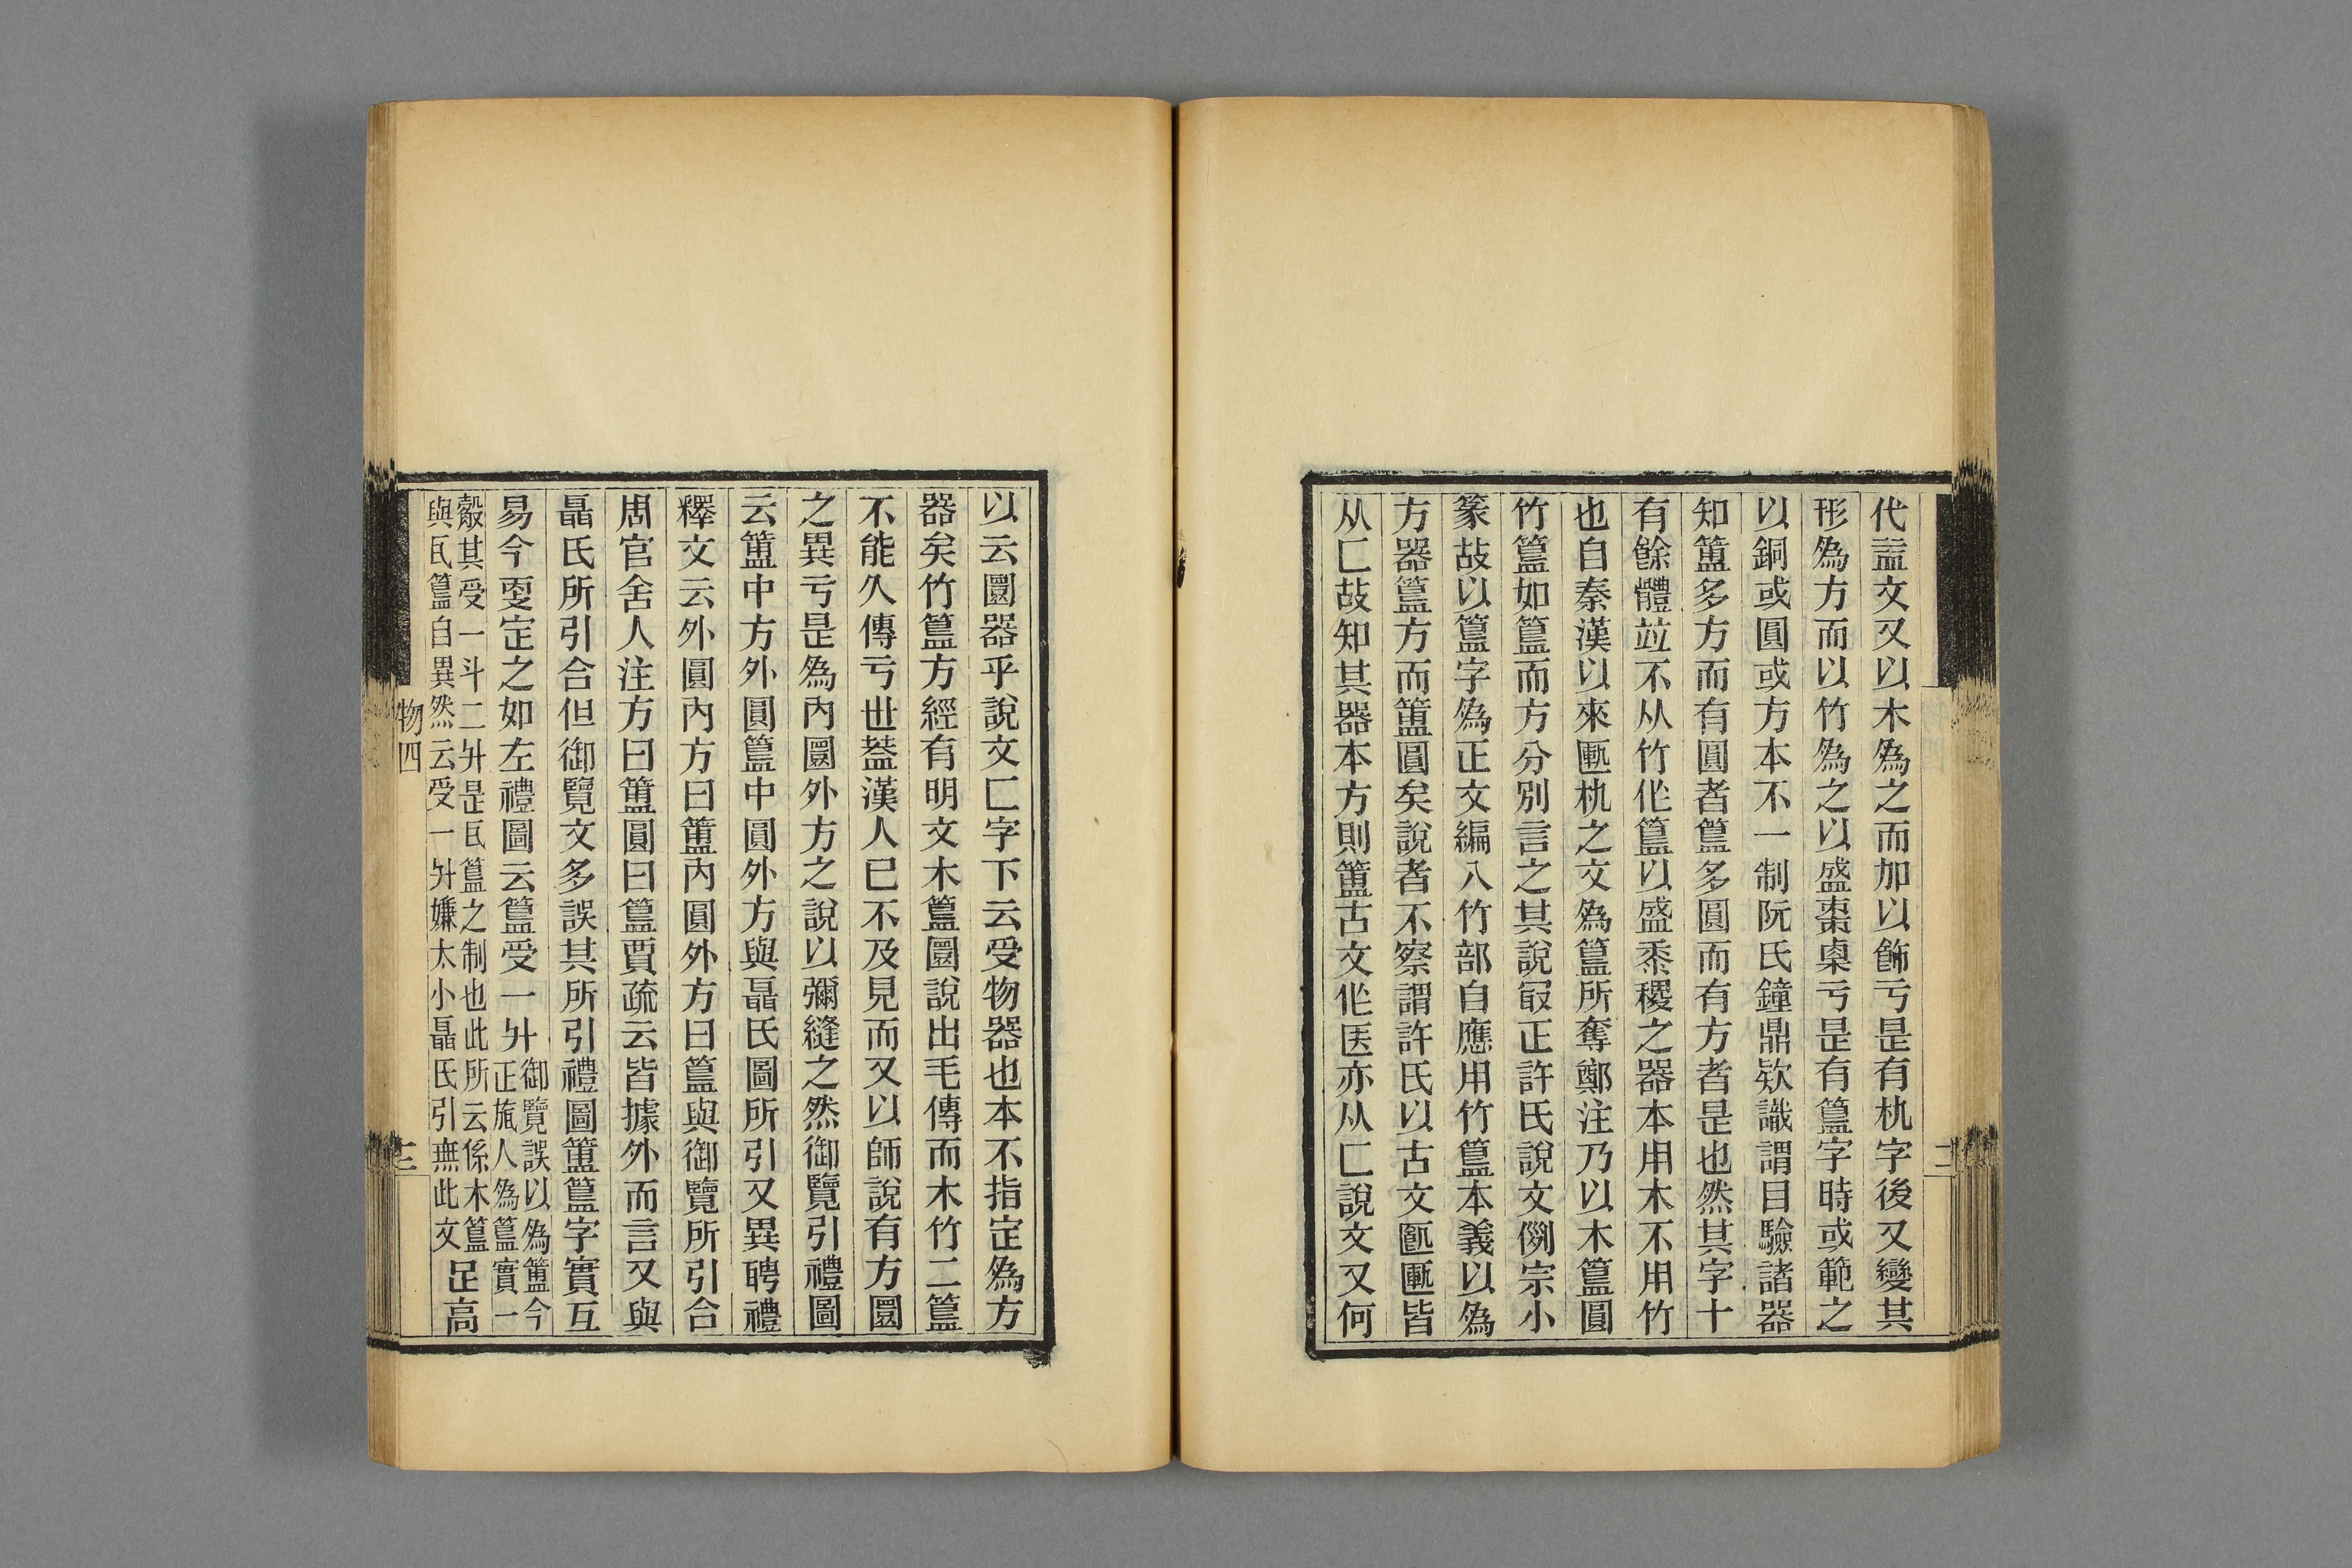 代盖文又以木為之而加以飾亏是有朹字後又變其
形為方而以竹為之以盛棗㮚亏是有簋字時或範之
以銅或圓或方本不一制阮氏鐘鼎欵識謂目驗諸器
知簠多方而有圓者簋多圓而有方者是也然其字十
有餘體竝不从竹作簋以盛黍稷之器本用木不用竹
也自秦漢以來匭朹之文為簋所奪鄭注乃以木簋圓
竹簋如簋而方分別言之其說㝡正許氏說文例宗小
篆故以簋字為正文編入竹部自應用竹簋本義以為
方器簋方而簠圓矣說者不察謂許氏以古文匭匭皆
从匚故知其器本方則簠古文作医亦从匚說文又何
二
以云圜器乎說文匚字下云受物器也本不指定為方
器矣竹簋方經有明文木簋圜說出毛傳而木竹二簋
不能久傳亏世葢漢人已不及見而又以師說有方圜
之異亏是為內圜外方之說以彌縫之然御覽引禮圖
云簠中方外圓簋中圓外方與聶氏圖所引又異聘禮
釋文云外圓內方曰簠內圓外方曰簋與御覽所引合
周官舍人注方曰簠圓曰簋賈疏云皆據外而言又與
聶氏所引合但御覽文多誤其所引禮圖簠簋字實互
易今㪅定之如左禮圖云簋受一升御覽誤以為簠今
正旊人為簋實一
觳其受一斗二升是瓦簋之制也此所云係木簋
與瓦簋自異然云受一升嫌太小聶氏引無此文足高
物四
三